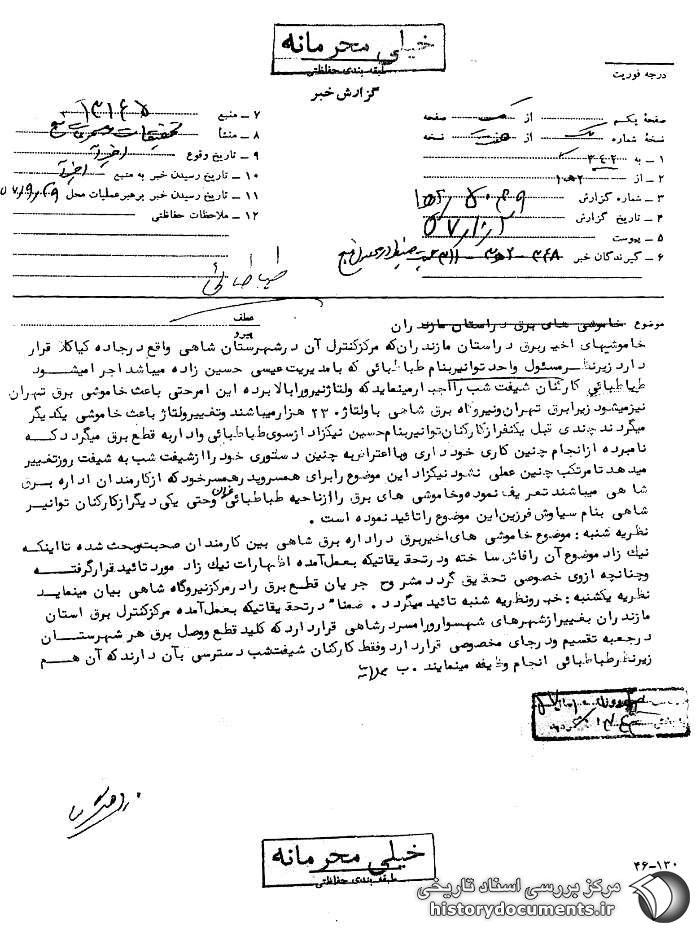 خیلی محرمانه
طبقه بندی حفاظتی
گزارش خبر
درجه فوریت
صفحه یکم از صفحه
نسخه شماره یک از هفت نسخه
۱ – به ۳۴۲
۲ – از ۱ه۲
۳ – شماره گزارش
۴ – تاریخ گزارش
۵ – پیوست
۶ – گیرندگان خبر
۷ – منبع ۱۳۱۶۵
۸ – منشأ
۹ – تاریخ وقوع اخیراً
۱۰ – تاریخ رسیدن خبر به منبع اخیراً
۱۱ – تاریخ رسیدن خبر برهبر عملیات محل
۱۲ – ملاحظات حفاظتی
طباطبائی
عطف
پیرو
موضوع خاموشی های برق در استان مازندران
خاموشیهای اخیر برق در استان مازندران که مرکز کنترل آن در شهرستان شاهی واقع در جاده کیاکلا قرار
دارد زیرنظر مسئول واحد توانیر بنام طباطبائی که با مدیریت عیسی حسین زاده میباشد اجرا میشود
طباطبائی کارکنان شیفت شب را اجبار مینماید که ولتاژ نیرو را بالا برده این امر حتی باعث خاموشی برق تهران
نیز میشود زیرا برق تهران و نیروگاه برق شاهی با ولتاژ ۲۳۰ هزار میباشند و تغییر ولتاژ باعث خاموشی یکدیگر
میگردند چندی قبل یکنفر از کارکنان توانیر بنام حسین نیکزاد از سوی طباطبائی وادار به قطع برق میگردد که
نامبرده از انجام چنین کاری خودداری و با اعتراض به چنین دستوری خود را از شیفت شب به شیفت روز تغییر
میدهد تا مرتکب چنین عملی نشود نیکزاد این موضوع را برای همسر و پدر همسر خود که از کارمندان اداره برق
شاهی میباشند تعریف نموده و خاموشی های برق را از ناحیه طباطبائی عنوان و حتی یکی دیگر از کارکنان توانیر
شاهی بنام سیاوش فرزین این موضوع را تائید نموده است .
نظریه شنبه : موضوع خاموشی های اخیر برق در اداره برق شاهی بین کارمندان صحبت و بحث شده تا اینکه
نیک زاد موضوع آن را فاش ساخته و در تحقیقاتیکه بعمل آمده اظهارات نیک زاد مورد تائید قرار گرفته
و چنانچه از وی خصوصی تحقیق گردد مشروح جریان قطع برق را در مرکز نیروگاه شاهی بیان مینماید
نظریه یکشنبه : خبر و نظریه شنبه تائید میگردد . ضمناً در تحقیقاتیکه بعمل آمده مرکز کنترل برق استان
مازندران بغییر از شهرهای شهسوار و رامسر در شاهی قرار دارد که کلید قطع و وصل برق هر شهرستان
در جعبه تقسیم و در جای مخصوصی قرار دارد و فقط کارکنان شیفت شب دسترسی بآن دارند که آن هم
زیرنظر طباطبائی انجام وظیفه مینمایند . ب
خیلی محرمانه
طبقه بندی حفاظتی
۴۶–۱۳۰
مرکز بررسی اسناد تاریخی
historydocuments.ir